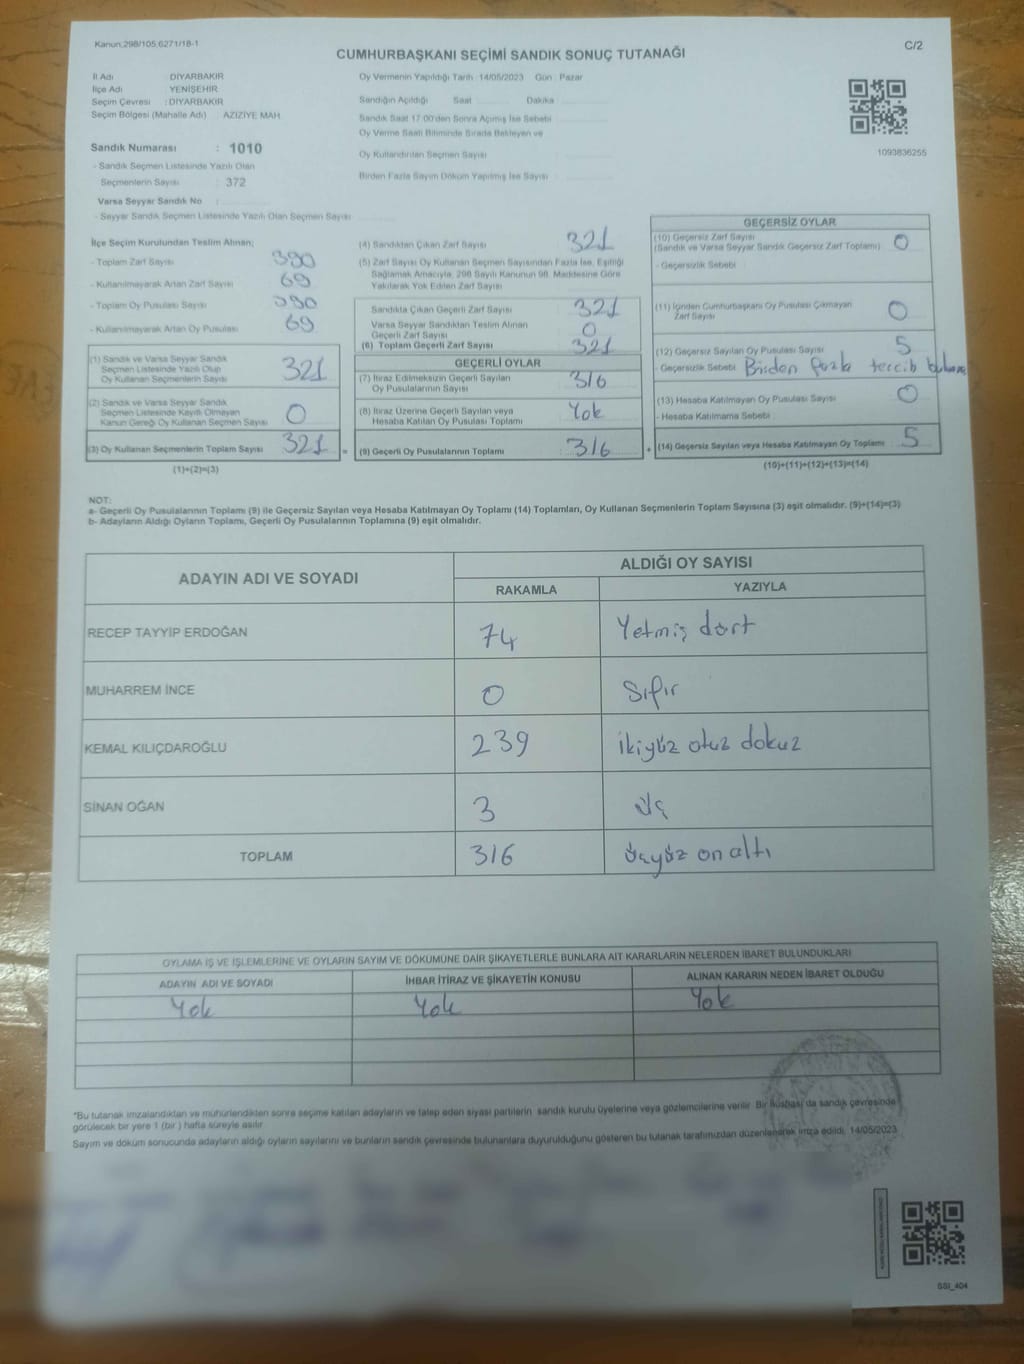 Kanun;298/105,6271/18-1
C/2
CUMHURBAŞKANI SEÇİMİ SANDIK SONUÇ TUTANAĞI
İl Adı DİYARBAKIR
İlçe Adı YENİŞEHİR
Seçim Çevresi : DİYARBAKIR
Seçim Bölgesi (Mahalle Adı) AZİZİYE MAH
Oy Vermenin Yapıldığı Tarih : 14/05/2023 Gün : Pazar
Sandığın Açıldığı Saat Dakika
Sandık Saat 17:00'den Sonra Açımış İse Sebebi
Oy Verme Saati Bitiminde Sırada Bekleyen ve
Oy Kullandırılan Seçmen Sayısı
Birden Fazla Sayım Döküm Yapılmış İse Sayısı
1093836255
Sandık Numarası : 1010
- Sandık Seçmen Listesinde Yazılı Olan
Seçmenlerin Sayısı : 372
Varsa Seyyar Sandık No :
- Seyyar Sandık Seçmen Listesinde Yazılı Olan Seçmen Sayısı
İlçe Seçim Kurulundan Teslim Alınan;
- Toplam Zarf Sayısı 390
- Kullanılmayarak Artan Zarf Sayısı 69
- Toplam Oy Pusulası Sayısı 390
- Kullanılmayarak Artan Oy Pusulası 69
(1) Sandık ve Varsa Seyyar Sandık
Seçmen Listesinde Yazılı Olup
Oy Kullanan Seçmenlerin Sayısı 321
(2) Sandık ve Varsa Seyyar Sandık
Seçmen Listesinde Kayıtlı Olmayan
Kanun Gereği Oy Kullanan Seçmen Sayısı 0
(3) Oy Kullanan Seçmenlerin Toplam Sayısı 321 =
(1)+(2)=(3)
(4) Sandıktan Çıkan Zarf Sayısı 321
(5) Zarf Sayısı Oy Kullanan Seçmen Sayısından Fazla İse, Eşitliği
Sağlamak Amacıyla, 298 Sayılı Kanunun 98. Maddesine Göre
Yakılarak Yok Edilen Zarf Sayısı
Sandıkta Çıkan Geçerli Zarf Sayısı 321
Varsa Seyyar Sandıktan Teslim Alınan
Geçerli Zarf Sayısı 0
(6) Toplam Geçerli Zarf Sayısı 321
GEÇERLİ OYLAR
(7) İtiraz Edilmeksizin Geçerli Sayılan
Oy Pusulalarının Sayısı 316
(8) İtiraz Üzerine Geçerli Sayılan veya
Hesaba Katılan Oy Pusulası Toplamı Yok
(9) Geçerli Oy Pusulalarının Toplamı 316 +
GEÇERSİZ OYLAR
(10) Geçersiz Zarf Sayısı
(Sandık ve Varsa Seyyar Sandık Geçersiz Zarf Toplamı) 0
- Geçersizlik Sebebi
(11) İçinden Cumhurbaşkanı Oy Pusulası Çıkmayan
Zarf Sayısı 0
(12) Geçersiz Sayılan Oy Pusulası Sayısı 5
- Geçersizlik Sebebi Birden fazla tercih
(13) Hesaba Katılmayan Oy Pusulası Sayısı 0
- Hesaba Katılmama Sebebi
(14) Geçersiz Sayılan veya Hesaba Katılmayan Oy Toplamı 5
(10)+(11)+(12)+(13)=(14)
NOT:
a- Geçerli Oy Pusulalarının Toplamı (9) ile Geçersiz Sayılan veya Hesaba Katılmayan Oy Toplamı (14) Toplamları, Oy Kullanan Seçmenlerin Toplam Sayısına (3) eşit olmalıdır. (9)+(14)=(3)
b- Adayların Aldığı Oyların Toplamı, Geçerli Oy Pusulalarının Toplamına (9) eşit olmalıdır.
ADAYIN ADI VE SOYADI
ALDIĞI OY SAYISI
RAKAMLA YAZIYLA
RECEP TAYYİP ERDOĞAN 74 Yetmiş dört
MUHARREM İNCE 0 Sıfır
KEMAL KILIÇDAROĞLU 239 İkiyüz otuz dokuz
SİNAN OĞAN 3 üç
TOPLAM 316 üçyüz on altı
OYLAMA İŞ VE İŞLEMLERİNE VE OYLARIN SAYIM VE DÖKÜMÜNE DAİR ŞİKAYETLERLE BUNLARA AİT KARARLARIN NELERDEN İBARET BULUNDUKLARI
ADAYIN ADI VE SOYADI İHBAR İTİRAZ VE ŞİKAYETİN KONUSU ALINAN KARARIN NEDEN İBARET OLDUĞU
Yok Yok Yok
*Bu tutanak imzalandıktan ve mühürlendikten sonra seçime katılan adayların ve talep eden siyasi partilerin sandık kurulu üyelerine veya gözlemcilerine verilir. Bir nüshası da sandık çevresinde
görülecek bir yere 1 (bir) hafta süreyle asılır.
Sayım ve döküm sonucunda adayların aldığı oyların sayılarını ve bunların sandık çevresinde bulunanlara duyurulduğunu gösteren bu tutanak tarafımızdan düzenlenerek imza edildi. 14/05/2023
SSI_404